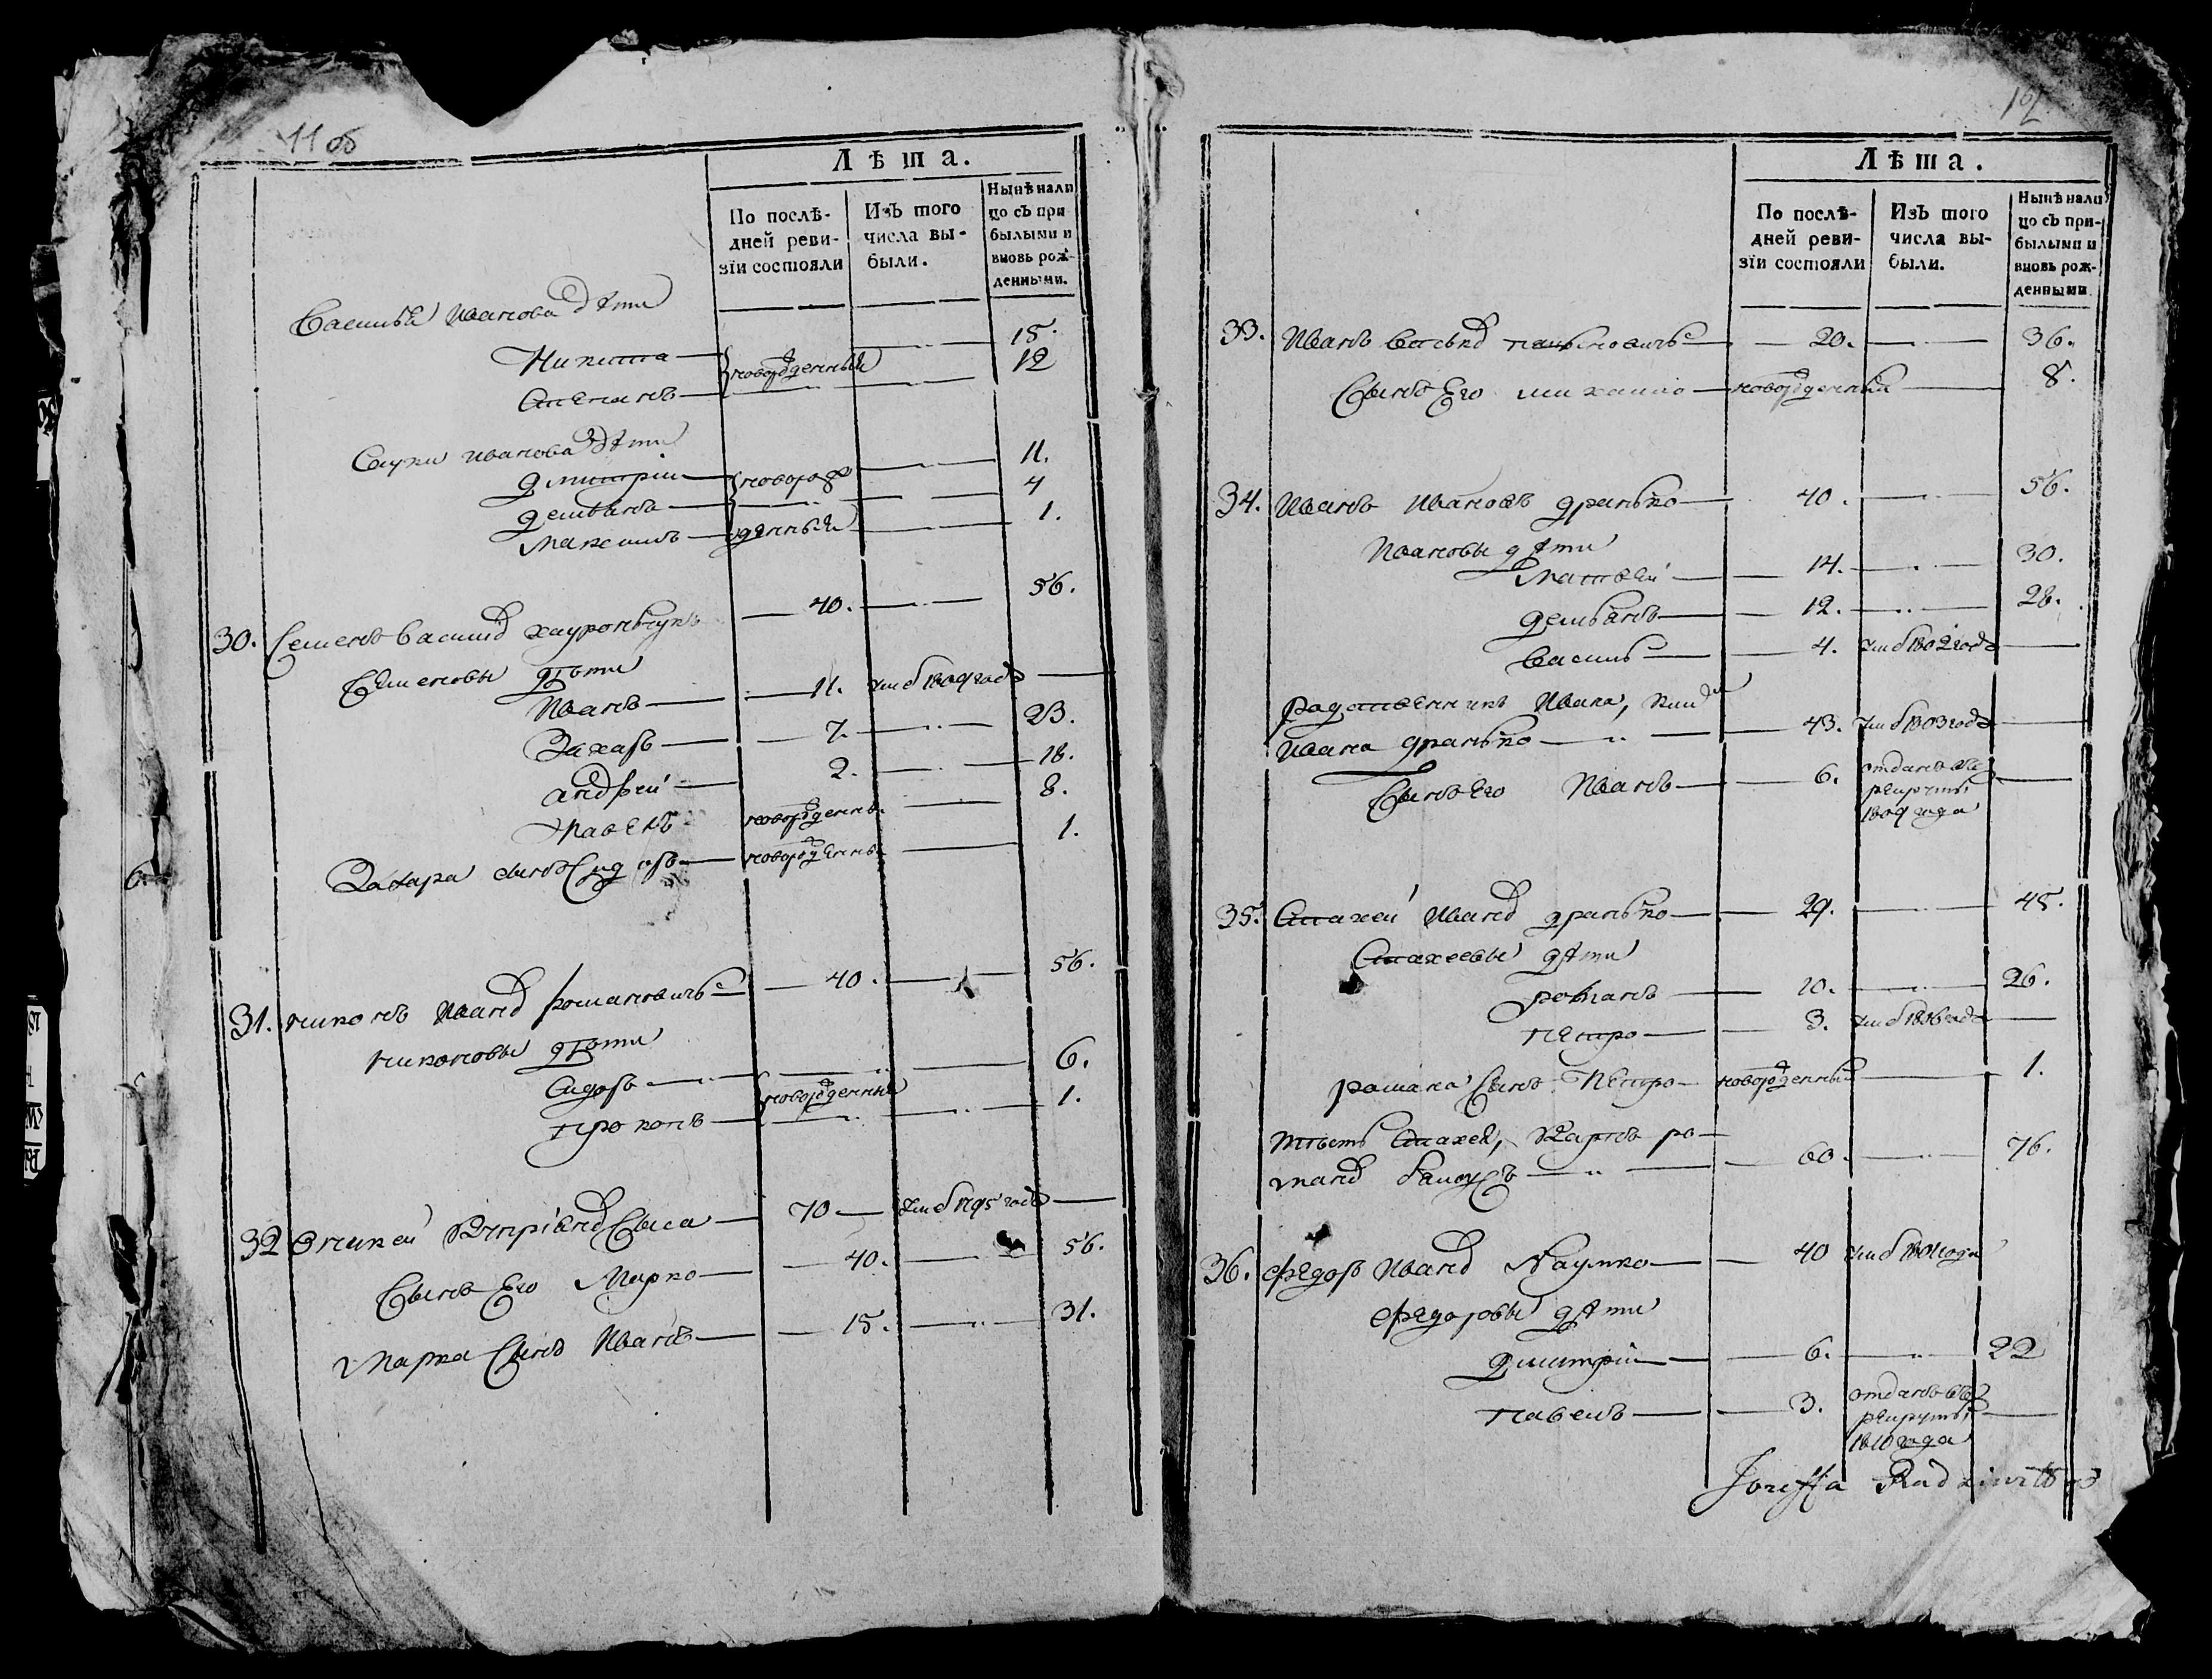 11 об
Лѣта.
По послѣ-
дней реви-
зіи состояли
Изъ того
числа вы-
были.
Нынѣ нали
цо съ при
былыми и
вновь рож-
денными.
Василья Иванова дѣти
Никита — новорожденныи — 15.
Степанъ — 12
Сауки Иванова дѣти
Дмитріи — новорож — 11.
Демьянъ — 4
Максимъ — денныи — 1.
30. Семенъ Васильевъ — 40. — 56.
Семеновы дѣти
Иванъ — 11. умеръ 1809 года —
Захаръ — 7. — 23.
Андрѣй — 2. — 18.
Павелъ новорожденны — 8.
Захара сынъ Сидоръ — новорожденны — 1.
31. Никонъ Ивановъ Романовичъ — 40. — 56.
Никоновы дѣти
Сидоръ — новорожденные — 6.
Прокопъ — 1.
32 Сыса — 70 — умеръ 1795 года —
Сынъ Его Марко — 40. — 56.
Марка Сынъ Иванъ — 15. — 31.
12
Лѣта.
По послѣ-
дней реви-
зіи состояли
Изъ того
числа вы-
были.
Нынѣ нали
цо съ при-
былыми и
вновь рож-
денными
33. Иванъ — 20. — 36.
Сынъ Его Михаило — новорожденныи — 8.
34. Иванъ Ивановъ Дранько — 40. — 56.
Ивановы дѣти
Матвей — 14. — 30.
Демьянъ — 12. — 28.
Василь — 4. умеръ 1802 года —
Родственникъ Ивана,
Ивана Дранько — 43. умеръ 1803 года —
Сынъ Его Иванъ — 6. отданъ въ
рекруты
1809 года
35. Стахей Ивановъ Дранько — 29. — 45.
Стахеевы дѣти
Романъ — 10. — 26.
Петро — 3. умеръ 1806 года —
Романа Сынъ Петро — новорожденный — 1.
Тесть Стахея, Карпъ Ро-
мановъ — 60. — 76.
36. Федоръ Ивановъ Наумко — 40 умеръ 1801 года
Федоровы дѣти
Дмитріи — 6. — 22
Павелъ — 3. отданъ въ
рекруты
1810 года
Radziwiłł